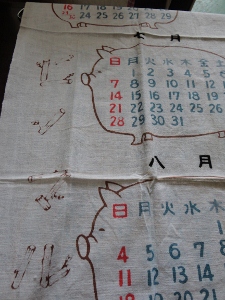 16 17 18 19 20 21 22
24 25 26 27 28 29
七月
日 月 火 水 木 金 土
1 2 3 4 5 6
7 8 9 10 11 12
14 15 16 17 18 19
21 22 23 24 25 26
28 29 30 31
八月
日 月 火 水 木
1
4 5 6 7 8
11 12 13 14
18 19 20 21